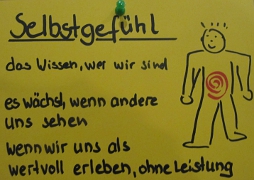 Selbstgefühl
das Wissen, wer wir sind
es wächst, wenn andere
uns sehen
wenn wir uns als
wertvoll erleben, ohne Leistung